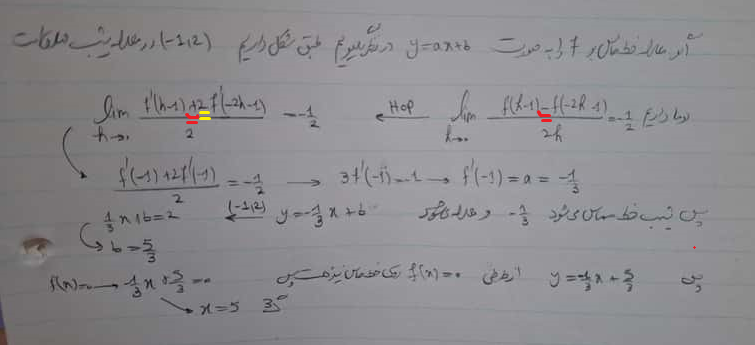 اگر معادله خط مماس بر f را به صورت y=ax+b در نظر بگیریم طبق شکل داریم (-1,2) در معادله
دوما داریم lim h→0 f(h-1)-f(-2h-1)/2h = -1/2 HOP ← lim h→0 f'(h-1)+2f'(-2h-1)/2 = -1/2
f'(-1)+2f'(-1)/2 = -1/2 → 3f'(-1)=-1 → f'(-1)=a=-1/3
پس شیب خط مماس می شود -1/3 و معادله می شود y=-1/3x+b (-1,2) ← 1/3x+b=2
b=5/3
پس y=-1/3x+5/3 از طرفی f(x)=0 روی خط مماس نیز هست پس
f(x)=0 → -1/3x+5/3=0
x=5